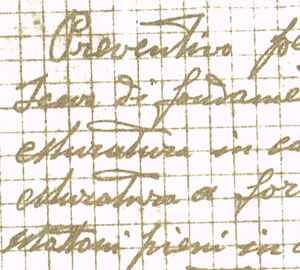 Preventivo pe
Scavo di fondame
Muratura in ca
Muratura a for
Mattoni pieni in